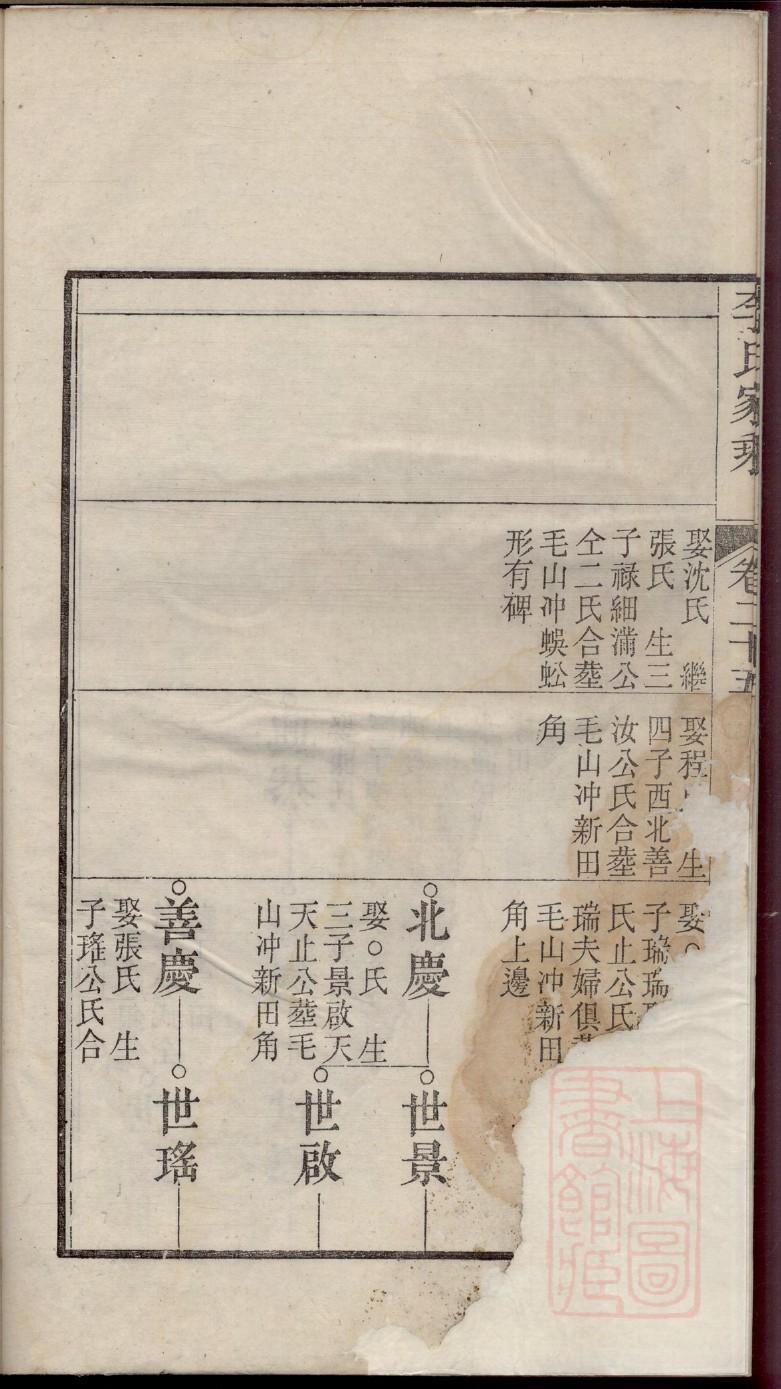 李氏家乘
卷二十五
娶沈氏　繼
張氏　生三
子禄細滿公
仝二氏合塟
毛山冲蜈蚣
形有碑
娶程　生
四子西北善
汝公氏合塟
毛山冲新田
角
娶○
子瑞瑞
氏止公氏
瑞夫婦俱
毛山冲新田
角上邊
○北慶
娶○氏　生
三子景啟天
天止公塟毛
山冲新田角
○善慶
娶張氏　生
子瑤公氏合
○世景
○世啟
○世瑤
上海圖
書館藏